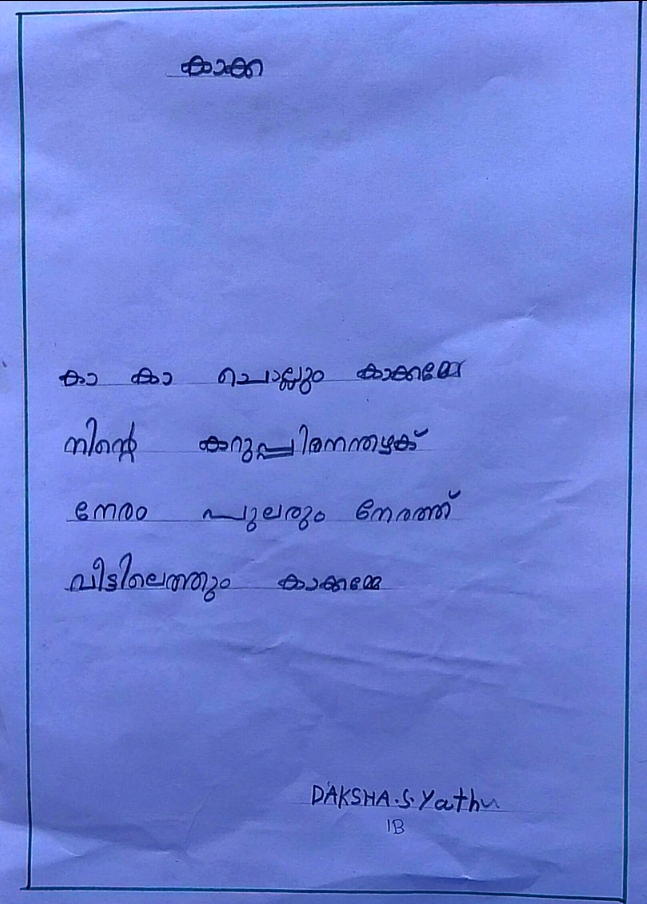 കാക്ക
കാ കാ ചൊല്ലും കാക്കമ്മേ
നിന്റെ കറുപ്പിനെന്തഴക്
നേരം പുലരും നേരത്ത്
വീട്ടിലെത്തും കാക്കമ്മേ
DAKSHA.S.Yathu
1B